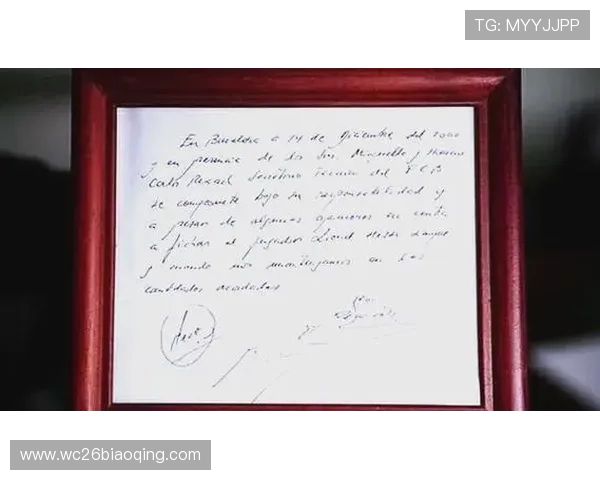 TG: MYYJJPP
En Barcelona a 14 de Diciembre del 2000
y en presencia de los Srs. Minguella y Horacio
Carles Rexach Secretario Técnico del F.C.B
se compromete bajo su responsabilidad y
a pesar de algunas opiniones en contra
a fichar al jugador Lionel Messi siempre
y cuando nos mantengamos en las
cantidades acordadas
www.wc26biaoqing.com